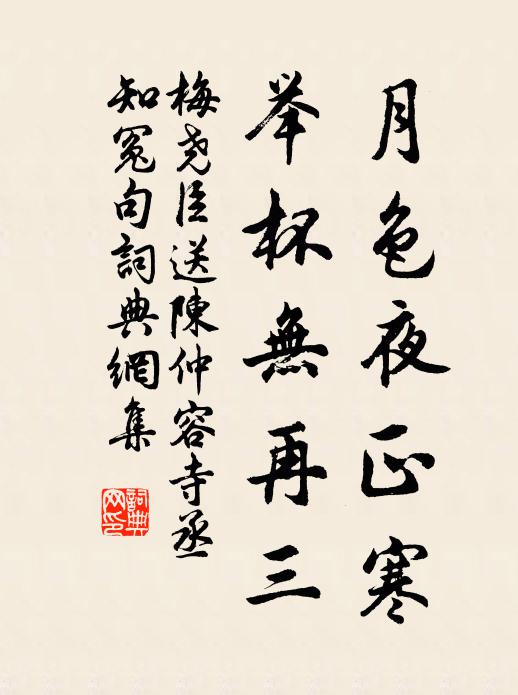 月色夜正寒
举杯無再三
梅尧臣送陳仲容寺丞
知冤句詞典網集
詞典网印